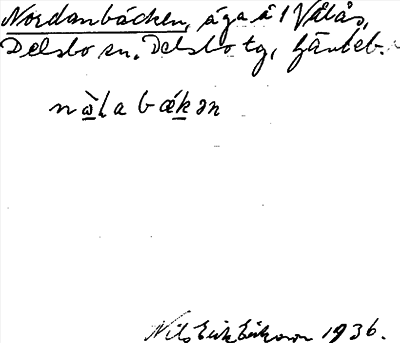 Nordanbäcken, äga å 1 Vålås,
Delsbo sn. Delsbo tg, Gävleb.
nɷ̀ḷabǽkən
Nils Erik Eriksson 1936.